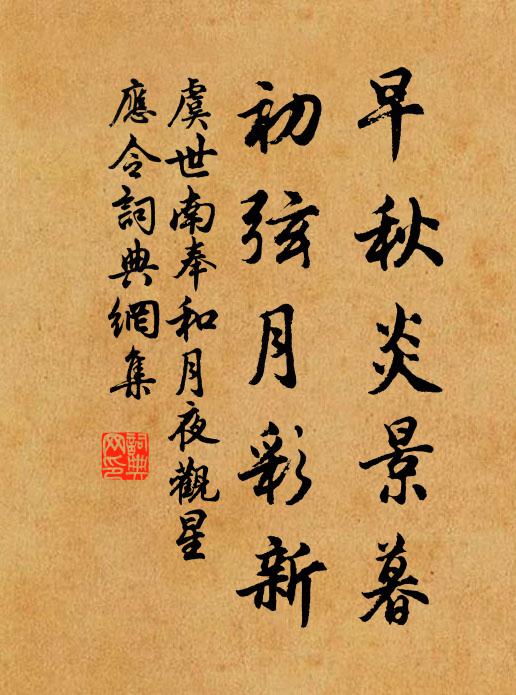 早秋炎景暮
初弦月彩新
虞世南奉和月夜觀星
應令詞典網集
詞典
网印